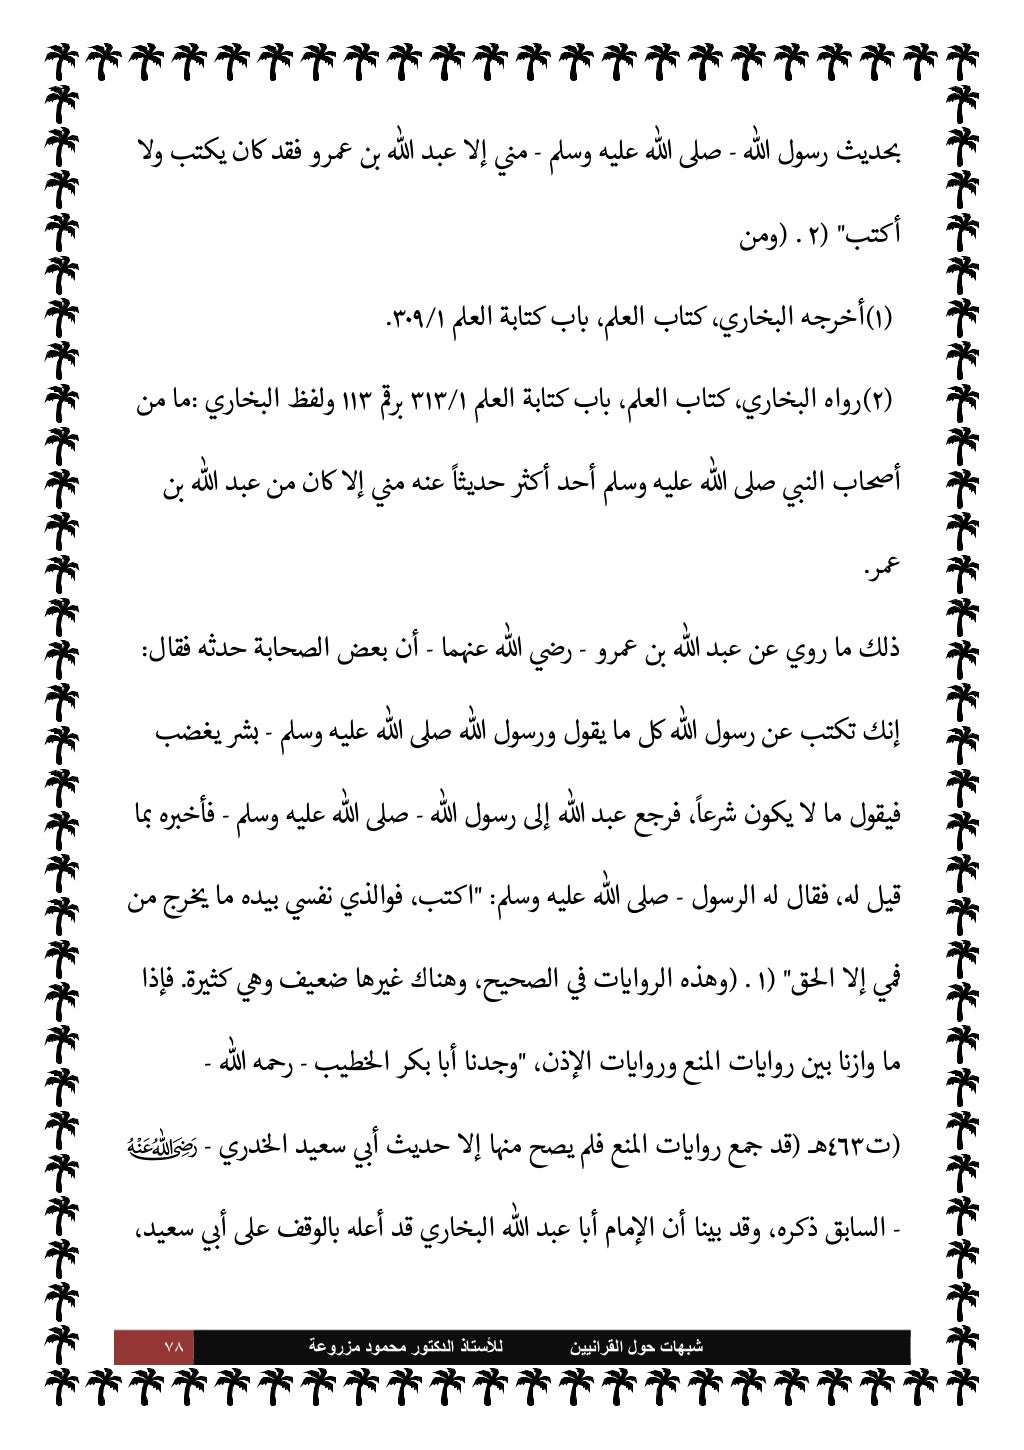 بحديث رسول الله - صلى الله عليه وسلم - مني إلا عبد الله بن عمرو فقد كان يكتب ولا
أكتب" (٢ . (ومن
(١)أخرجه البخاري، كتاب العلم، باب كتابة العلم ٣٠٩/١.
(٢)رواه البخاري، كتاب العلم، باب كتابة العلم ٣١٣/١ برقم ١١٣ ولفظ البخاري :ما من
أصحاب النبي صلى الله عليه وسلم أحد أكثر حديثاً عنه مني إلا كان من عبد الله بن
عمر.
ذلك ما روي عن عبد الله بن عمرو - رضي الله عنهما - أن بعض الصحابة حدثه فقال:
إنك تكتب عن رسول الله كل ما يقول ورسول الله صلى الله عليه وسلم - بشر يغضب
فيقول ما لا يكون شرعاً، فرجع عبد الله إلى رسول الله - صلى الله عليه وسلم - فأخبره بما
قيل له، فقال له الرسول - صلى الله عليه وسلم: "اكتب، فوالذي نفسي بيده ما يخرج من
فمي إلا الحق" (١ . (وهذه الروايات في الصحيح، وهناك غيرها ضعيف وهي كثيرة. فإذا
ما وازنا بين روايات المنع وروايات الإذن، "وجدنا أبا بكر الخطيب - رحمه الله -
(ت٤٦٣هـ (قد جمع روايات المنع فلم يصح منها إلا حديث أبي سعيد الخدري - رضي الله عنه
- السابق ذكره، وقد بينا أن الإمام أبا عبد الله البخاري قد أعله بالوقف على أبي سعيد،
شبهات حول القرانيين للأستاذ الدكتور محمود مزروعة ٧٨